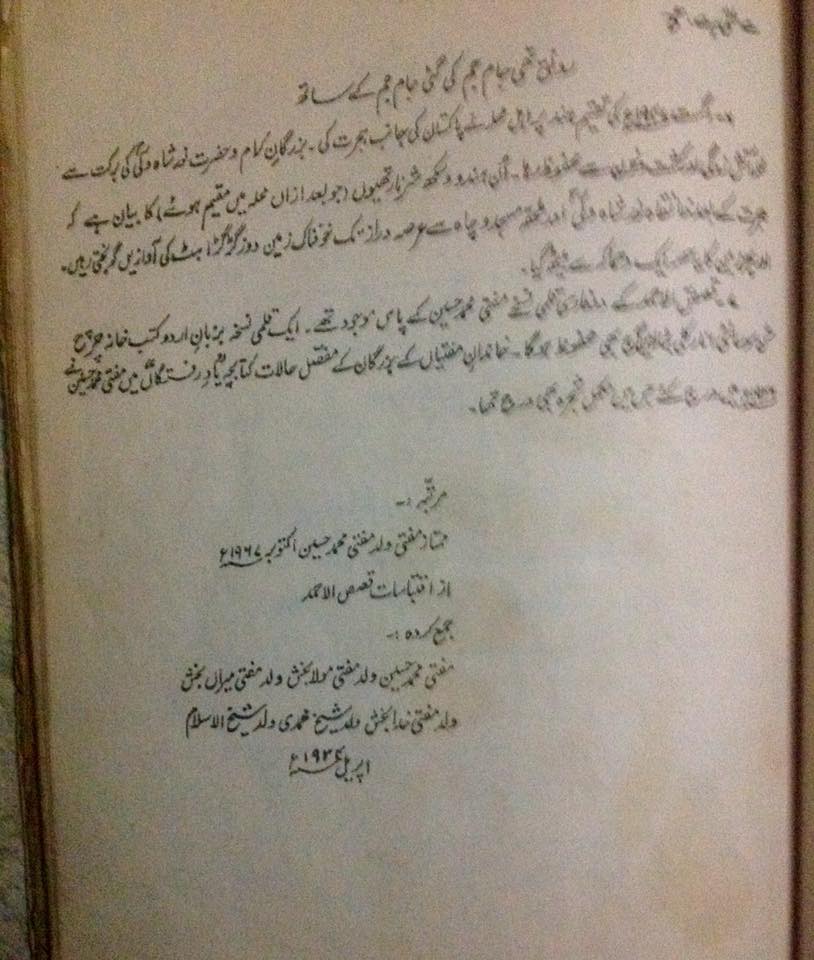 رونق تھی جام جم کی گئی جام جم کے ساتھ
اگست ۱۹۴۷ء کی تقسیم ہند پر اہل محلہ نے پاکستان کی جانب ہجرت کی۔ بزرگانِ کرام و حضرت نور شاہ ولیؒ کی برکت سے
سے محفوظ رہا۔ اُن ہندو و سکھ شرنارتھیوں (جو بعد ازاں محلہ میں مقیم ہوئے) کا بیان ہے کہ
ہجرت کے بعد خانقاہ نور شاہ ولیؒ اور ملحقہ مسجد و چاہ سے عرصہ دراز تک خوفناک زمین دوز گڑگڑاہٹ کی آوازیں گونجتی رہیں۔
ایک دھماکہ سے بیٹھ گیا۔
قصص الاحمد کے قلمی نسخے مفتی محمد حسین کے پاس موجود تھے۔ ایک قلمی نسخہ بزبانِ اردو کتب خانہ
بھی محفوظ ہوگا۔ خاندانِ مفتیاں کے بزرگان کے مفصل حالات کتابچہ "یادِ رفتگاں" میں مفتی محمد حسین نے
میں درج کئے جس میں مکمل شجرہ بھی درج تھا۔
مرتبہ :-
ممتاز مفتی ولد مفتی محمد حسین اکتوبر ۱۹۶۷ء
از اقتباسات قصص الاحمد
جمع کردہ :-
مفتی محمد حسین ولد مفتی مولا بخش ولد مفتی میراں بخش
ولد مفتی خدا بخش ولد شیخ محمدی ولد شیخ الاسلام
اپریل ۱۹۳۴ء